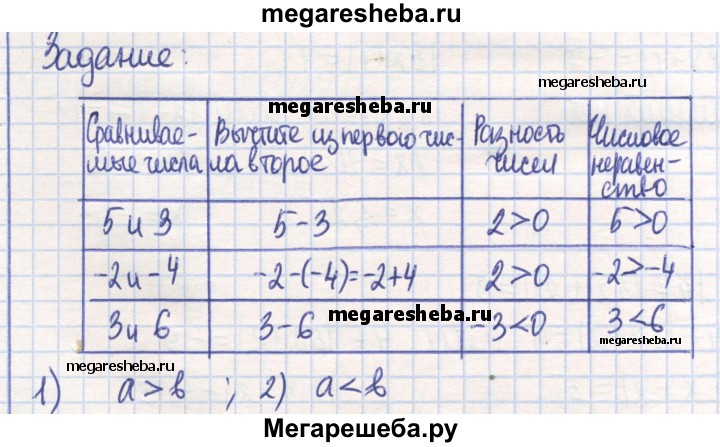 megaresheba.ru
Задание:
megaresheba.ru
megaresheba.ru
Сравнивае- Вычтите из первого чис- Разность Числовое
мые числа ла второе чисел неравен-
ство
5 и 3 5-3 2>0 5>0
-2 и -4 -2-(-4)=-2+4 2>0 -2>-4
3 и 6 3-6 -3<0 3<6
megaresheba.ru
megaresheba.ru
megaresheba.ru
1) a>b ; 2) a<b
Мегарешеба.ру